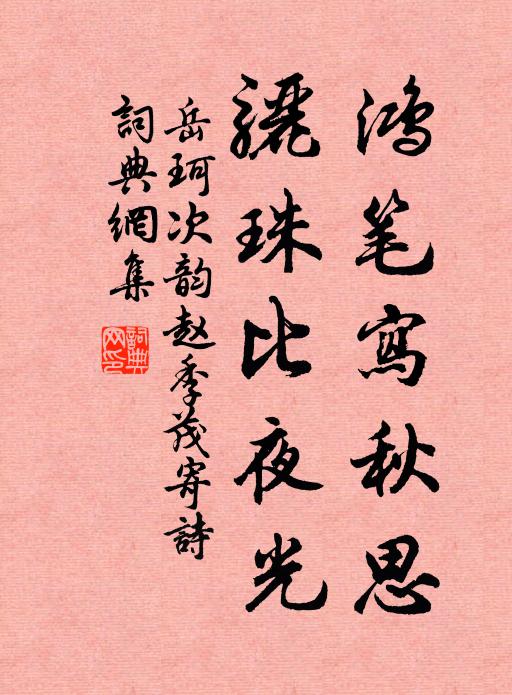 鸿笔寫秋思
驪珠比夜光
岳珂次韵赵季茂寄詩
詞典網集
詞典网印